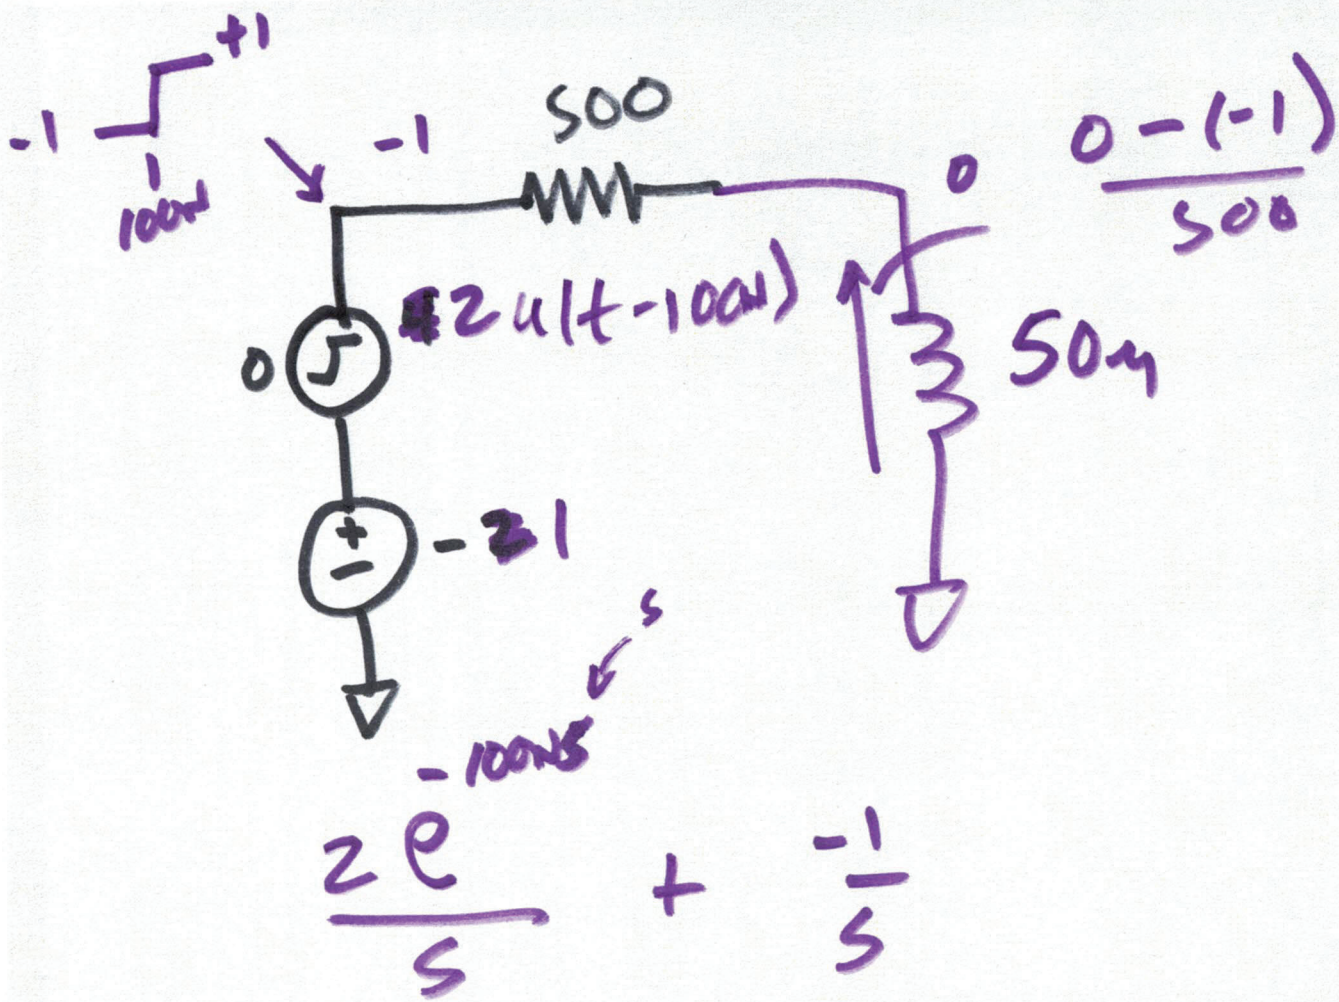 +1
-1
100N
-1
500
0
0 - (-1)
500
0
2u(t-100N)
50μ
+
-
- 1
s
2e^-100NS
s
+
-1
s